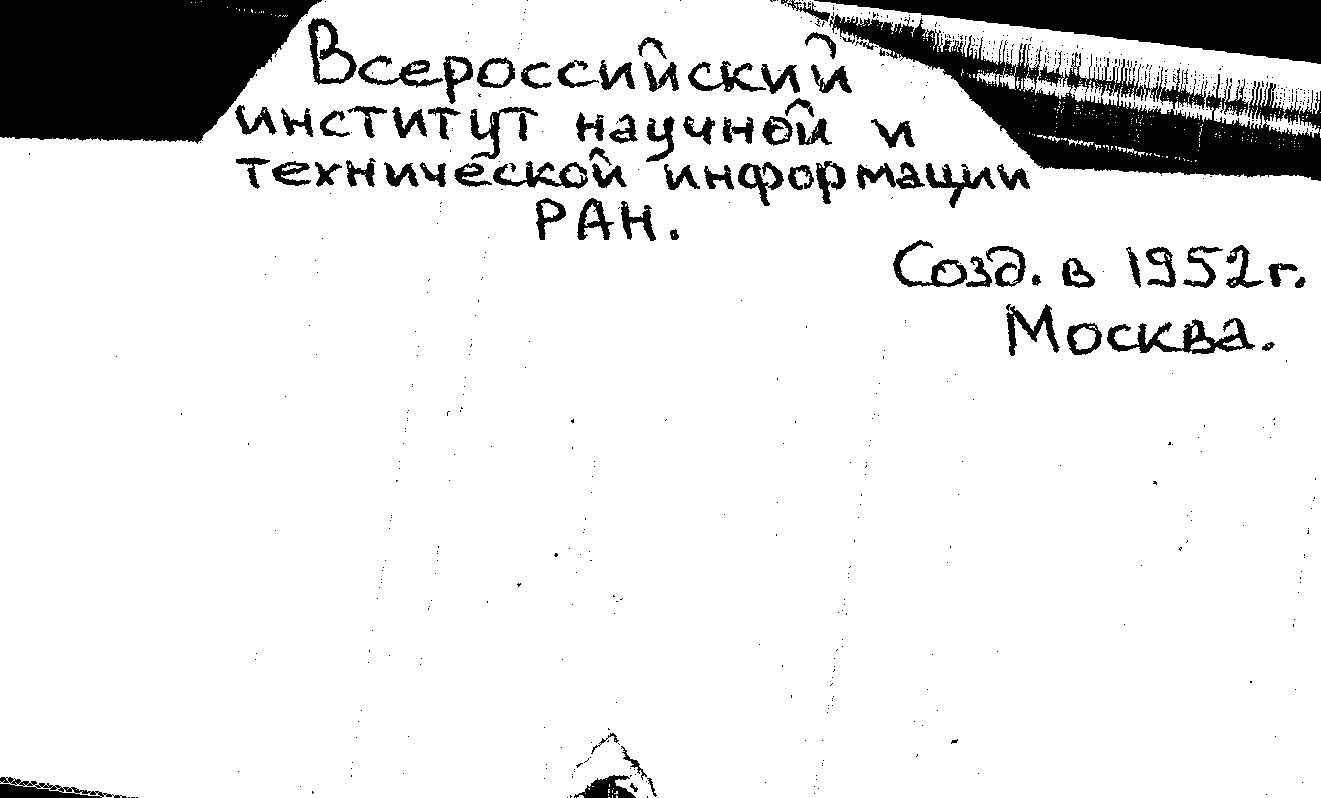 Всероссийский
институт научной и
технической информации
РАН.
Созд. в 1952г.
Москва.